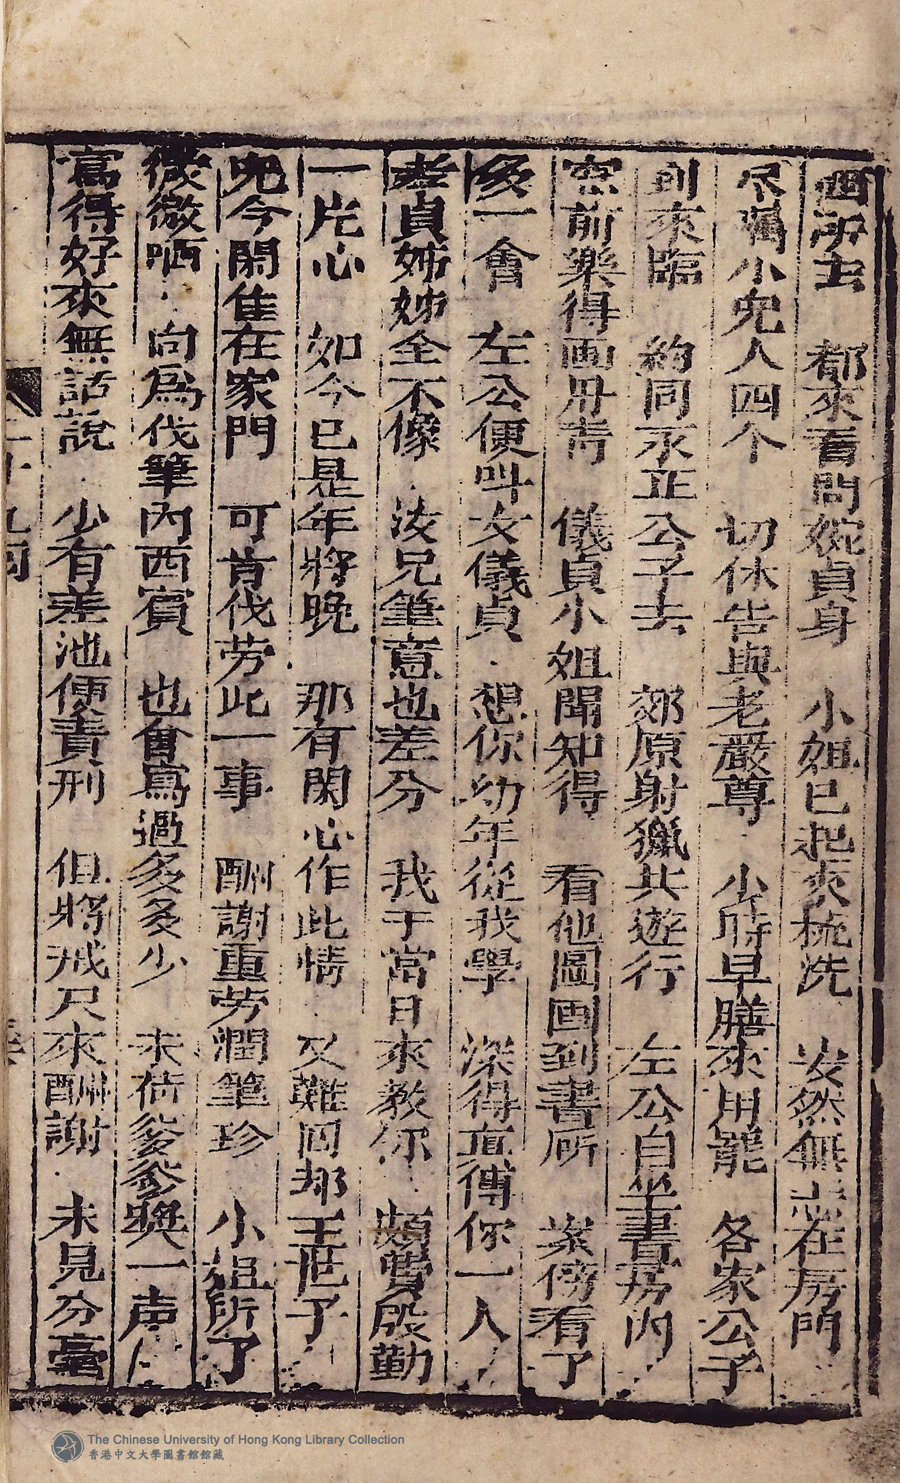 都來看問婉貞身　小姐已起來梳洗　安然無恙在房門
尽囑小兒人四个　切休告與老嚴尊　少時早膳來用罷　各家公子
到來臨　約同永正公子去　郊原射獵共遊行　左公自坐書房內
窓前樂得画丹青　儀貞小姐聞知得　看他圖画到書㕔　案傍看了
多一會　左公便叫女儀貞　想你幼年從我學　深得真傳你一人
孝貞姊姊全不像　汝兄筆意也差分　我于當日來教你　頗費殷勤
一片心　如今已是年將晚　那有閑心作此情　又難囬却王世子
兒今閑隹在家門　可肯伐劳此一事　酬謝重劳潤筆珍　小姐所了
微微哂　向爲伐筆內西賓　也會寫過多多少　未荷爹爹奬一声
寫得好來無話說　少有差池便責刑　但將戒尺來酬謝　未見分毫
二十九囘
The Chinese University of Hong Kong Library Collection
香港中文大學圖書館館藏